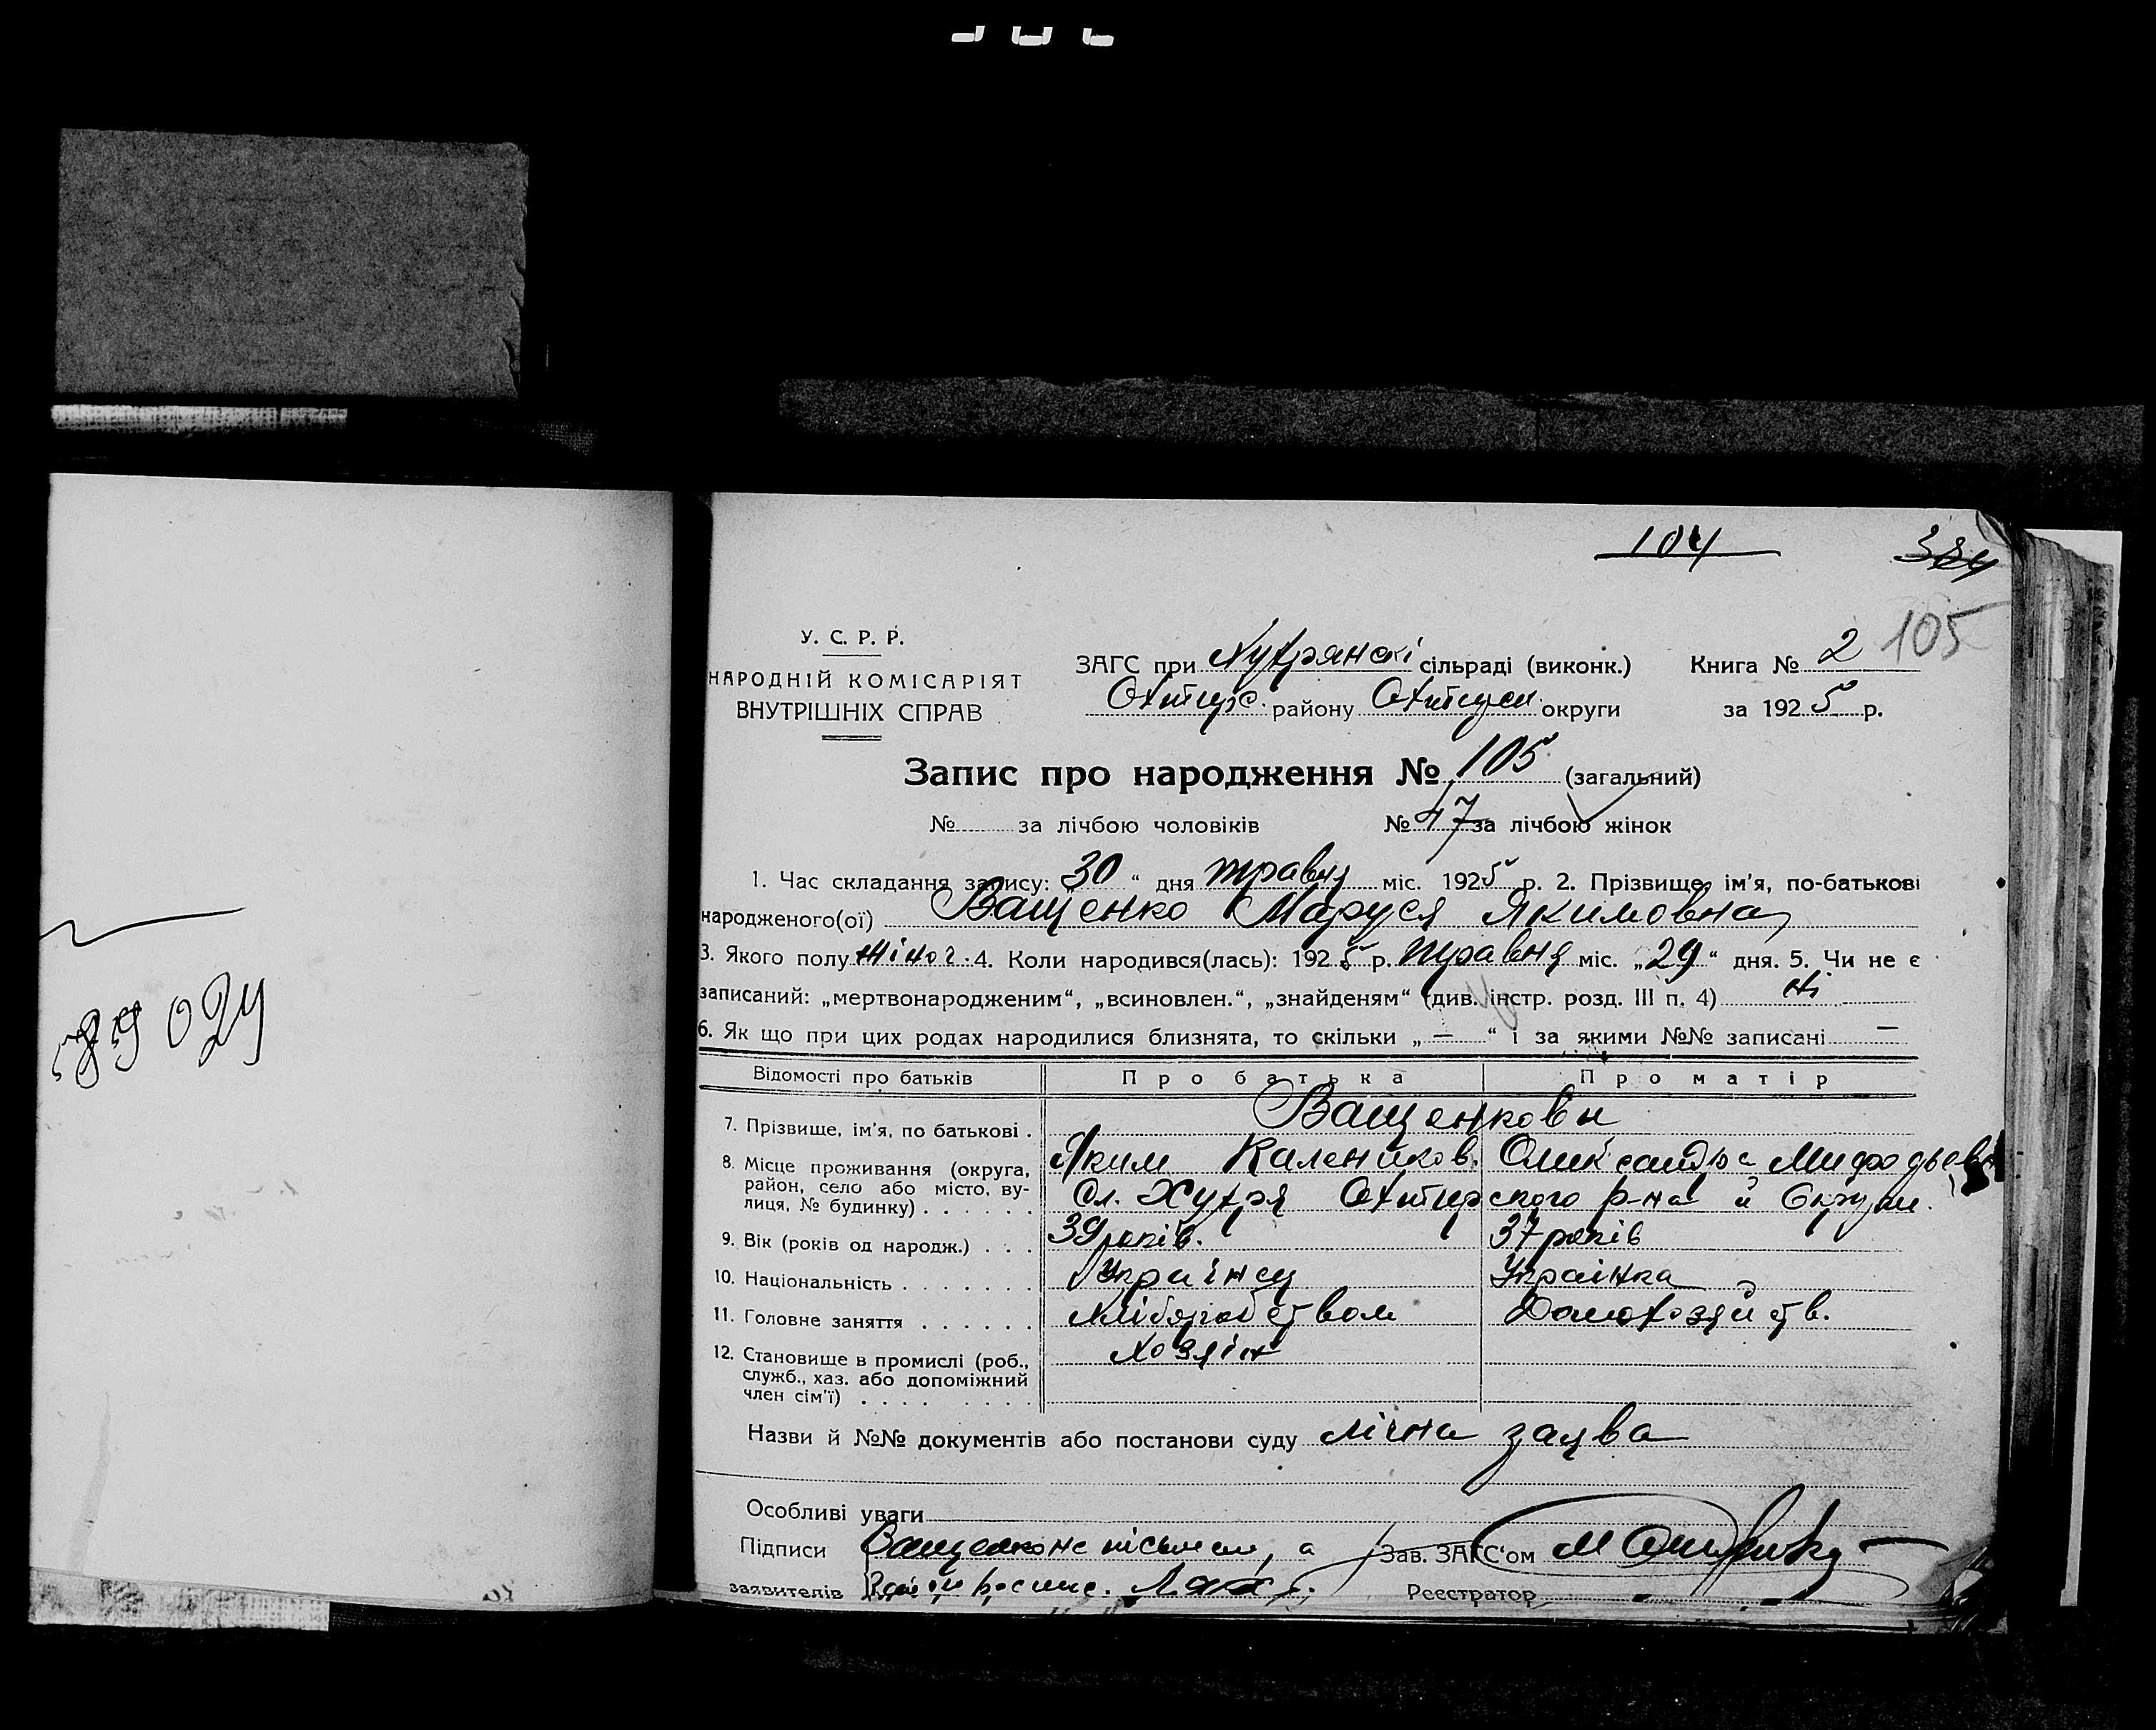 104 384
105
У. С. Р. Р.
НАРОДНІЙ КОМІСАРІЯТ
ВНУТРІШНІХ СПРАВ
ЗАГС при Хухрянскі сільраді (виконк.) Книга № 2
Охтирс. району Охтирск. округи за 1925 р.
Запис про народження № 105 (загальний)
№ за лічбою чоловіків № 47 за лічбою жінок
1. Час складання запису: „30“ дня травня міс. 1925 р. 2. Прізвище, ім'я, по-батькові
народженого(ої) Ващенко Маруся Якимовна
3. Якого полу жіноч. 4. Коли народився(лась): 1925 р. травня міс. „29“ дня. 5. Чи не є
записаний: „мертвонародженим“, „всиновлен.“, „знайденям“ (див. інстр. розд. III п. 4) ні
6. Як що при цих родах народилися близнята, то скільки „—“ і за якими №№ записані —
Відомості про батьків Про батька Про матір
7. Прізвище, ім'я, по батькові . Ващенковы
Яким Калеников. Олександра Мифодьевн
8. Місце проживання (округа, район, село або місто, ву-
лиця, № будинку) . . . . . . Сл. Хухря Охтирского р-на й Округи.
9. Вік (років од народж.) . . . 39 років. 37 років
10. Національність . . . . . . . Українец Українка
11. Головне заняття . . . . . . Хліборобством Домохозяйств.
12. Становище в промислі (роб., Хозяін
служб., хаз. або допоміжний
член сім'ї) . . . . . . . .
Назви й №№ документів або постанови суду лічна заява
Особливі уваги
Підписи Ващенко не письмен, а Зав. ЗАГС'ом
заявителів Реєстратор